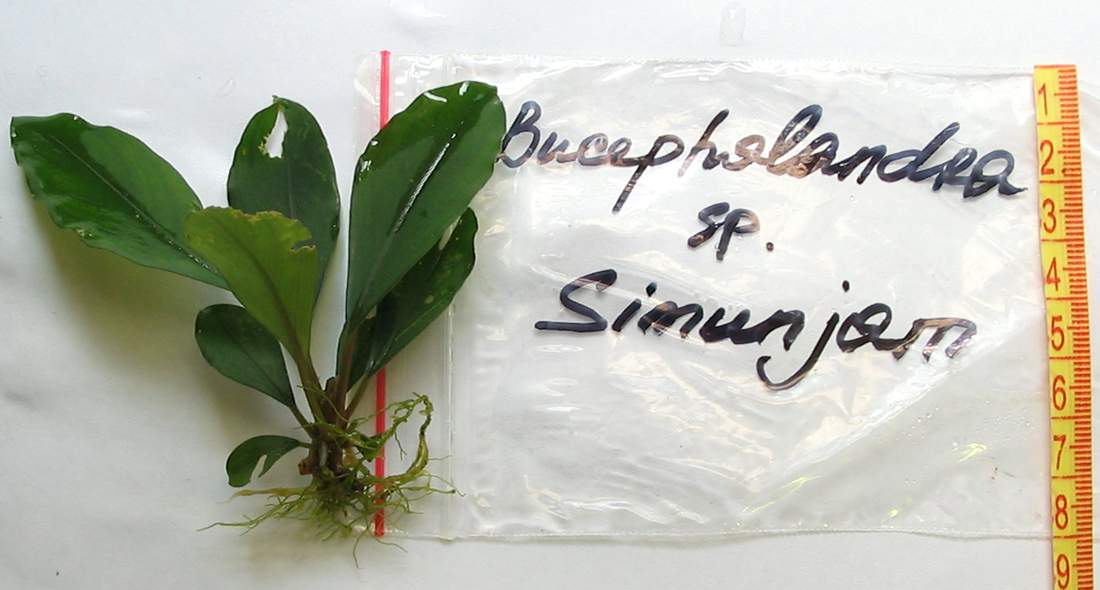 Bucephalandra
sp.
Simunjam
1
2
3
4
5
6
7
8
9